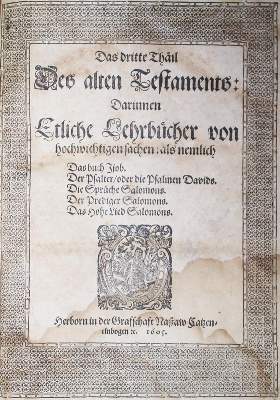 Das dritte Theil
Des alten Testaments:
Darinnen
Etliche Lehrbücher von
hochwichtigen sachen: als nemlich
Das buch Ijob.
Der Psalter/oder die Psalmen Davids.
Die Sprüche Salomons.
Der Prediger Salomons.
Das Hohe Lied Salomons.
Herborn in der Graffschaft Nassaw Catzen-
elnbogen ꝛc. 1605.